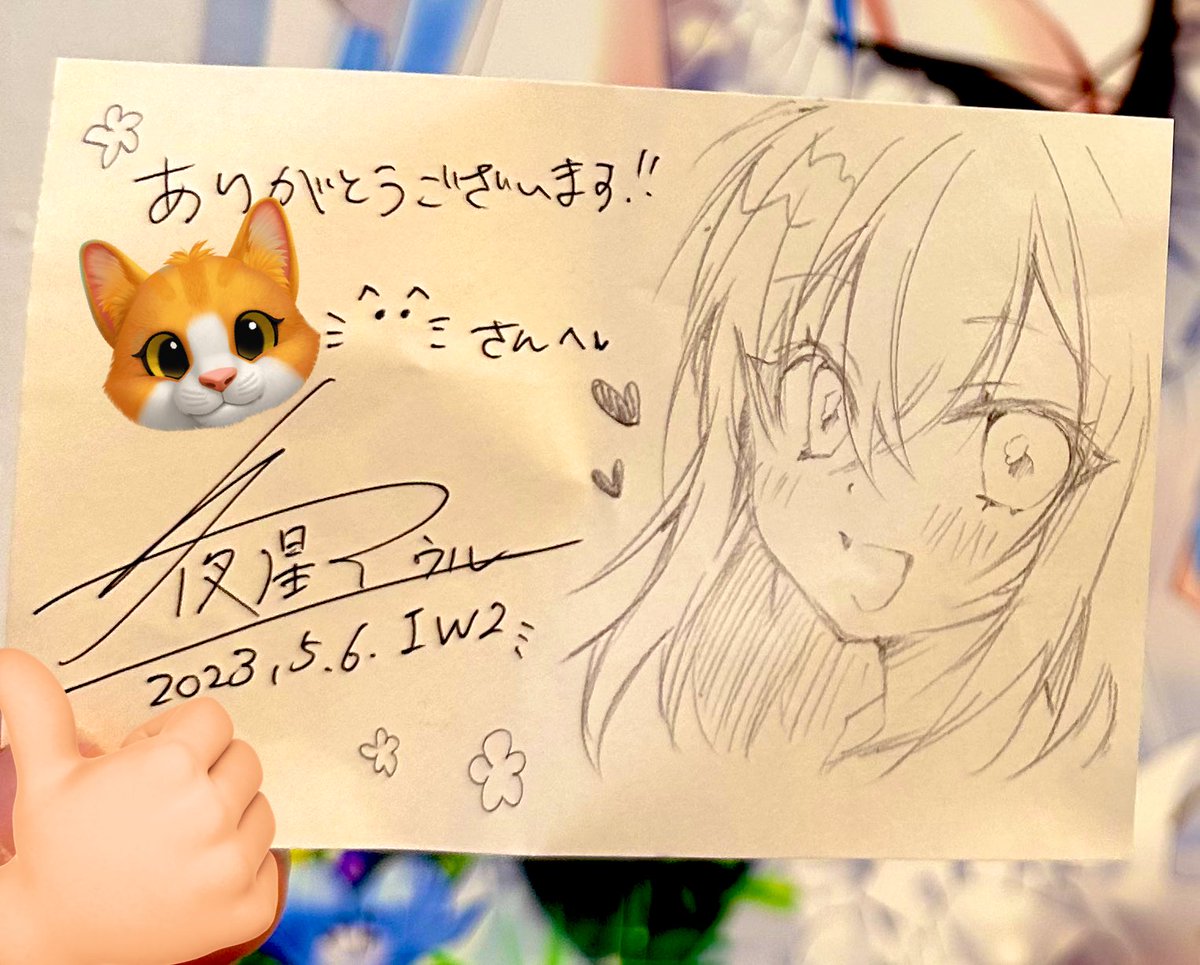 ありがとうございます!!
さんへ
夜星アウル
2023.5.6. IW2